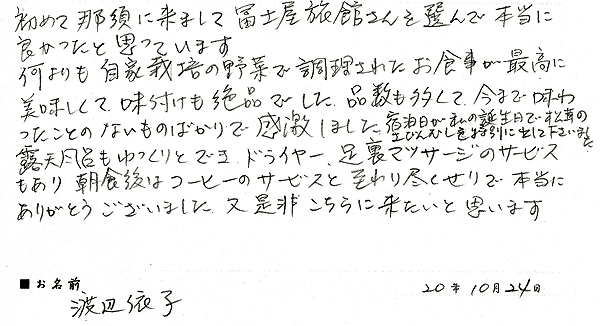 初めて那須に来まして冨士屋旅館さんを選んで本当に
良かったと思っています
何よりも自家栽培の野菜で調理されたお食事が最高に
美味しくて、味付けも絶品でした。品数も多くて、今まで味わ
ったことのないものばかりで感激しました 宿泊日が私の誕生日で松茸の
土びんむしを特別に出して下さいました
露天風呂もゆっくりとでき、ドライヤー、足裏マッサージのサービス
もあり 朝食後はコーヒーのサービスと至れり尽くせりで本当に
ありがとうございました。又是非こちらに来たいと思います
■お名前
渡辺依子
20年10月24日